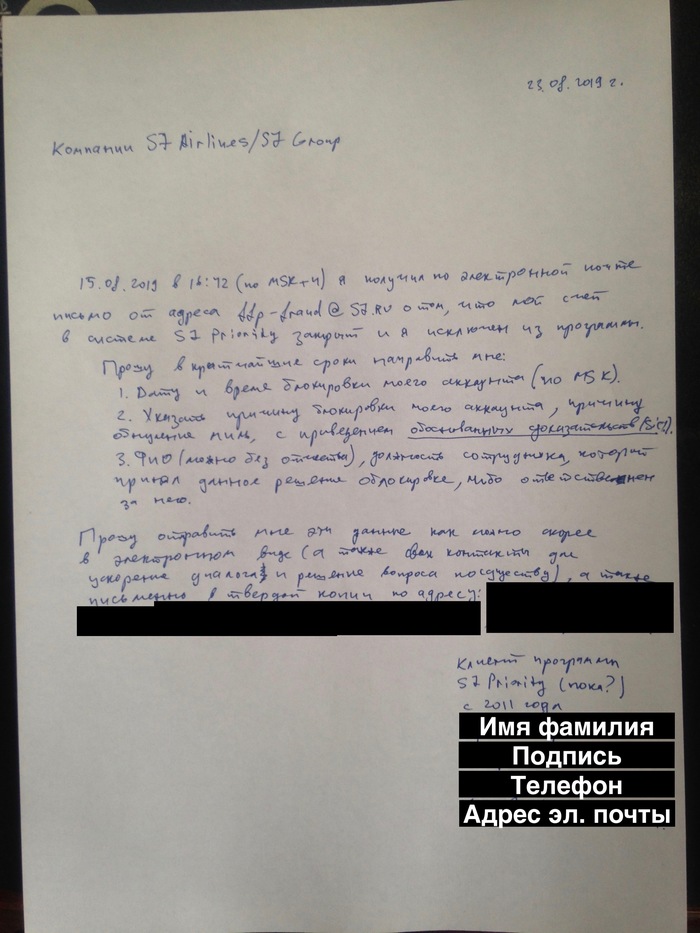 23.08.2019 г.
Компании S7 Airlines/S7 Group
15.08.2019 в 16:42 (по MSK+4) я получил по электронной почте
письмо от адреса ffp-fraud@S7.RU о том, что мой счет
в системе S7 Priority закрыт и я исключен из программы.
Прошу в кратчайшие сроки направить мне:
1. Дату и время блокировки моего аккаунта (по MSK).
2. Указать причину блокировки моего аккаунта, причину
обнуление миль, с приведением обоснованных доказательств (Sic!).
3. ФИО (можно без отчества), должность сотрудника, который
принял данное решение о блокировке, либо ответственен
за него.
Прошу отправить мне эти данные как можно скорее
в электронном виде (а также свои контакты для
ускорение диалога и решение вопроса по существу), а также
письменно в твердой копии по адресу:
Клиент программы
S7 Priority (пока?)
с 2011 года
Имя фамилия
Подпись
Телефон
Адрес эл. почты